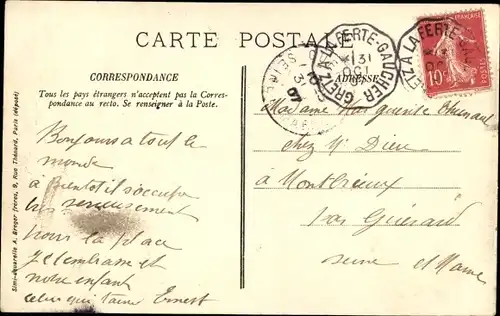 CARTE POSTALE
CORRESPONDANCE
Tous les pays étrangers n'acceptent pas la Corres-
pondance au recto. Se renseigner à la Poste.
ADRESSE
GRETZ A LA FERTE-GAUCHER
31
GRETZ A LA FERTE-GAU
10
Bonjour a tout le
monde
à bientôt il s'occupe
très serieusement
pour la place
Je t'embrasse et
notre enfant
celui qui t'aime Ernest
Madame Marguerite
chez Mr Dieu
à Montbrieux
par Guérard
Seine et Marne
Simi-Aquarelle A. Breger frères, 9, Rue Thénard, Paris (déposé)